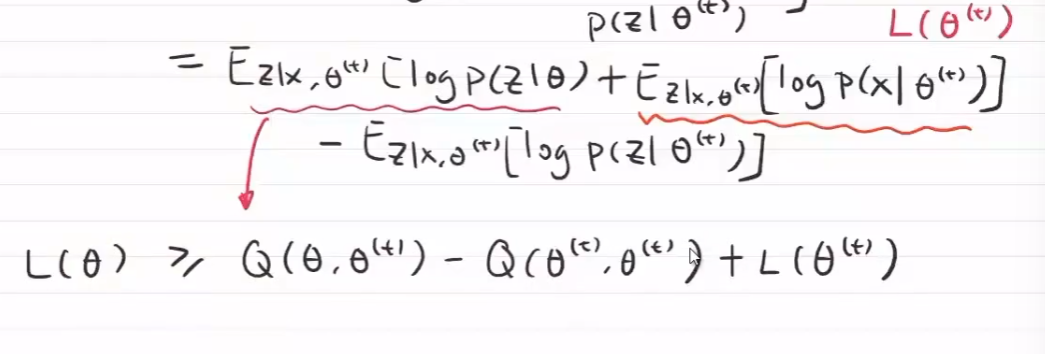 p(z| θ^(t))
L(θ^(t))
= E_{z|x,θ^(t)} [log p(z|θ) + E_{z|x,θ^(t)}[log p(x|θ^(t))]
− E_{z|x,θ^(t)}[log p(z|θ^(t))]
L(θ) ≥ Q(θ,θ^(t)) − Q(θ^(t),θ^(t)) + L(θ^(t))